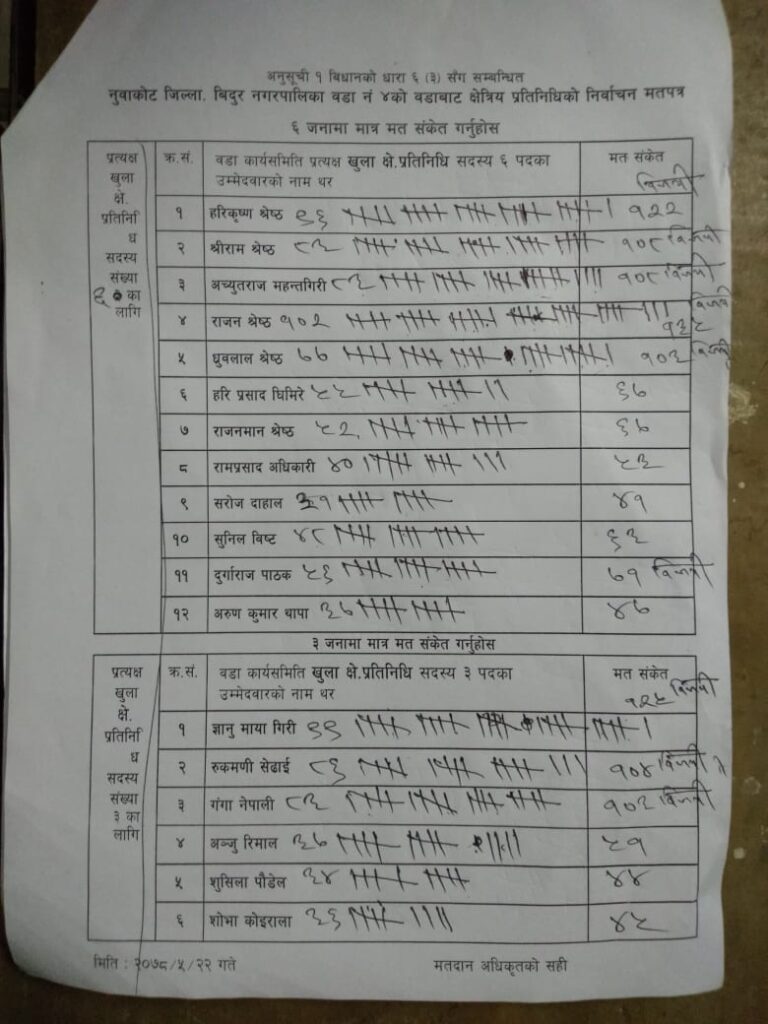 अनुसूची १ बिधानको धारा ६ (३) सँग सम्बन्धित
नुवाकोट जिल्ला, बिदुर नगरपालिका वडा नं ४को वडाबाट क्षेत्रिय प्रतिनिधिको निर्वाचन मतपत्र
६ जनामा मात्र मत संकेत गर्नुहोस
प्रत्यक्ष खुला क्षे. प्रतिनिधि सदस्य संख्या ६ का लागि
क्र.सं. वडा कार्यसमिति प्रत्यक्ष खुला क्षे.प्रतिनिधि सदस्य ६ पदका मत संकेत
उम्मेदवारको नाम थर विजयी
१ हरिकृष्ण श्रेष्ठ ९६ १२२
२ श्रीराम श्रेष्ठ ८३ १०८ विजयी
३ अच्युतराज महन्तगिरी ८३ १०८ विजयी
४ राजन श्रेष्ठ १०२ विजयी
५ ध्रुवलाल श्रेष्ठ ७७ १०३ विजयी
६ हरि प्रसाद घिमिरे ५५ ६७
७ राजनमान श्रेष्ठ ५२ ६७
८ रामप्रसाद अधिकारी ४० ५३
९ सरोज दाहाल ३१ ४१
१० सुनिल विष्ट ४८ ६३
११ दुर्गाराज पाठक ५६ ७१ विजयी
१२ अरुण कुमार थापा ३७ ४७
३ जनामा मात्र मत संकेत गर्नुहोस
प्रत्यक्ष खुला क्षे. प्रतिनिधि सदस्य संख्या ३ का लागि
क्र.सं. वडा कार्यसमिति खुला क्षे.प्रतिनिधि सदस्य ३ पदका मत संकेत
उम्मेदवारको नाम थर १२५ विजयी
१ ज्ञानु माया गिरी ९९
२ रुकमणी सेढाई ८६ १०४ विजयी
३ गंगा नेपाली ८३ १०३ विजयी
४ अञ्जु रिमाल ३७ ५१
५ शुसिला पौडेल ३४ ४४
६ शोभा कोइराला ३६ ४५
मिति : २०७८/५/२२ गते मतदान अधिकृतको सही